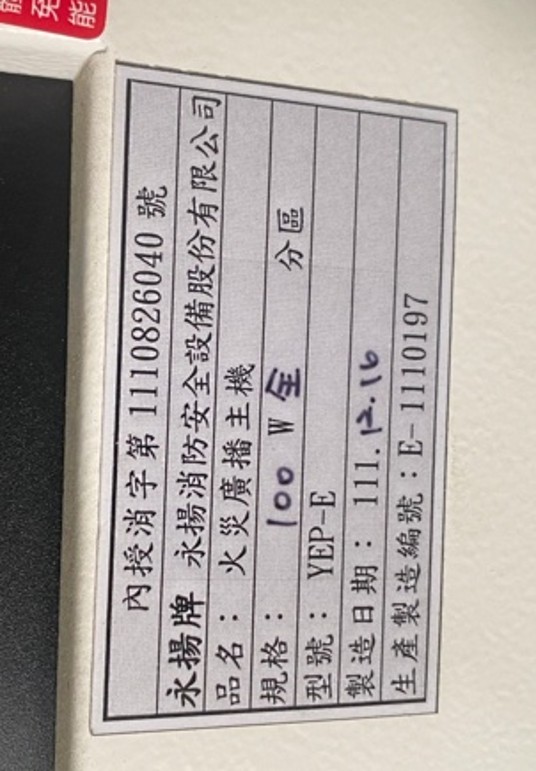 內授消字第 1110826040 號
永揚牌 永揚消防安全設備股份有限公司
品名： 火災廣播主機
規格： 100 W 全 分區
型號： YEP-E
製造日期： 111.12.16
生產製造編號：E-1110197
免
能